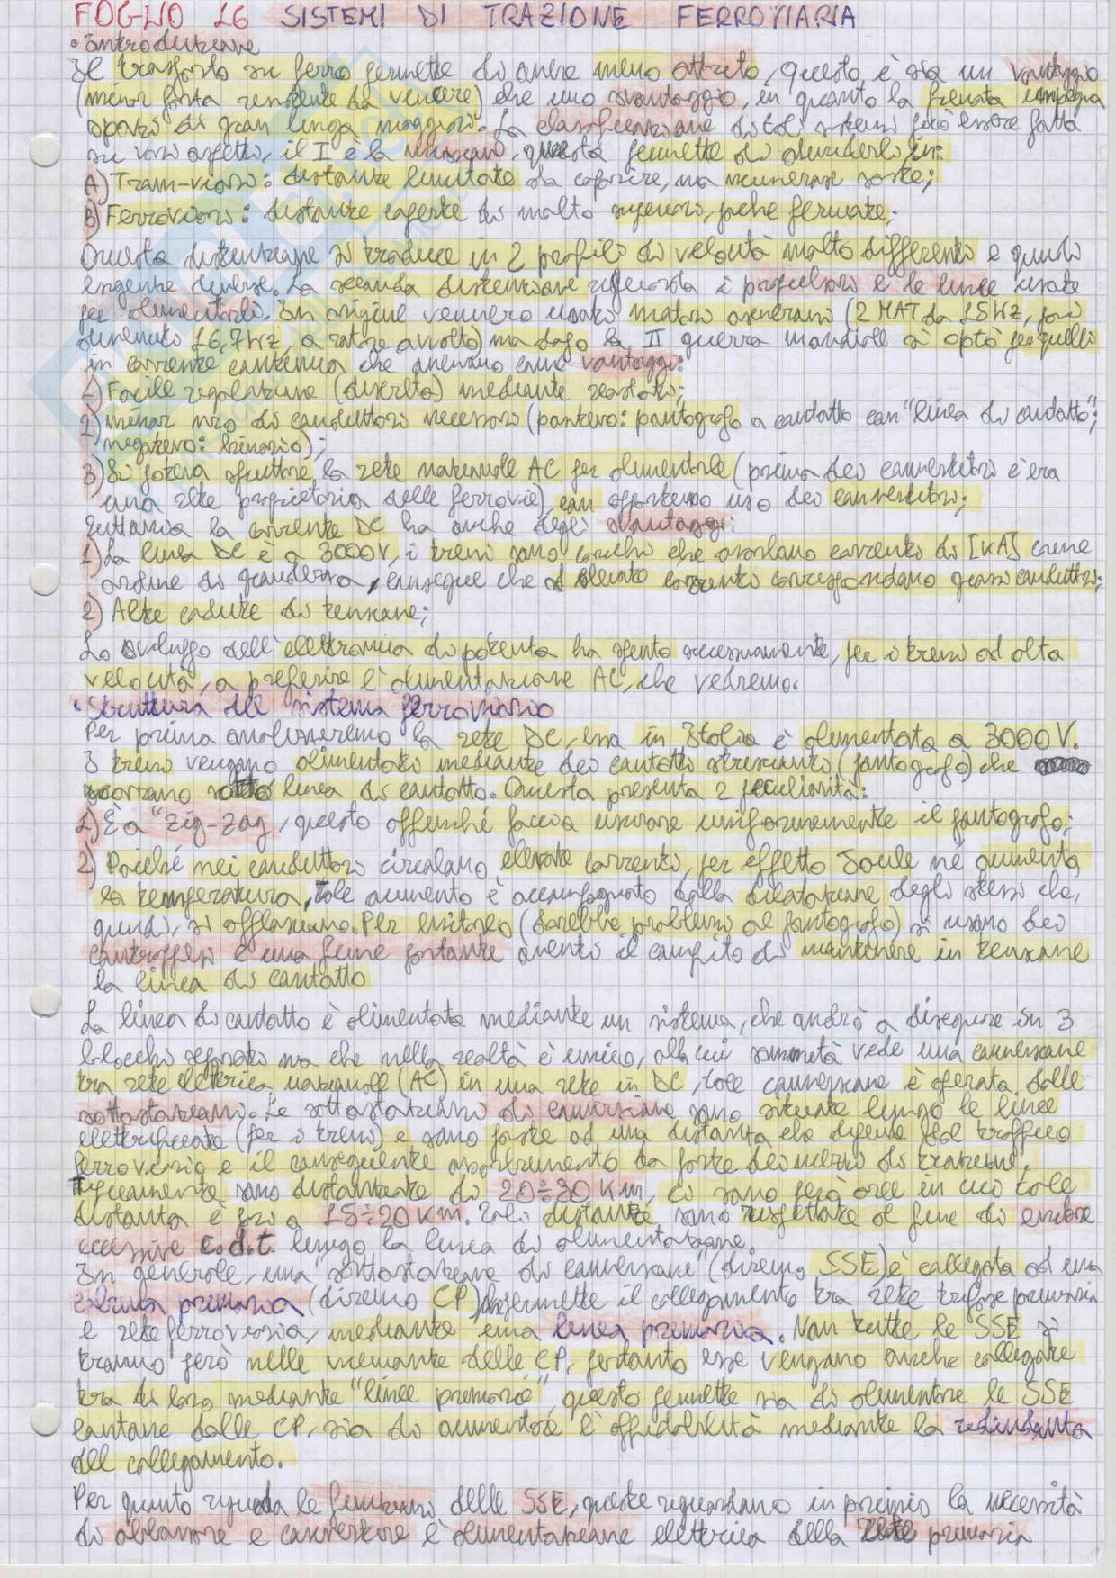 FOGLIO 16 SISTEMI DI TRAZIONE FERROVIARIA
• Introduzione
Il trasporto su ferro permette di avere meno attrito, questo è sia un vantaggio
(minor forza resistente da vincere) che uno svantaggio, in quanto la frenata impegna
spazi di gran lunga maggiori. La classificazione di tali sistemi può essere fatta
su vari aspetti, il I è la missione, questa permette di dividerli in:
A) Tram-viari: distanze limitate da coprire, ma numerose soste;
B) Ferroviari: distanze coperte di molto superiori, poche fermate;
Questa distinzione si traduce in 2 profili di velocità molto differenti e quindi
esigenze diverse. La seconda distinzione riguarda i propulsori e le linee usate
per alimentarli. In origine vennero usati motori asincroni (2 MAT da 15 Hz, poi
divenuto 16,7 Hz, a rotore avvolto) ma dopo la II guerra mondiale si optò per quelli
in corrente continua che avevano come vantaggi:
1) Facile regolazione (discreta) mediante reostati;
2) minor nro di conduttori necessari (positivo: pantografo a contatto con "linea di contatto";
negativo: binario);
3) Si poteva sfruttare la rete nazionale AC per alimentarle (prima dei convertitori c'era
una rete proprietaria delle ferrovie) con opportuno uso dei convertitori;
Tuttavia la corrente DC ha anche degli svantaggi:
1) La linea DC è a 3000V, i treni sono carichi che assorbono corrente di [kA] come
ordine di grandezza, consegue che ad elevate correnti corrispondano grossi conduttori;
2) Alte cadute di tensione;
Lo sviluppo dell'elettronica di potenza ha spinto recentemente, per i treni ad alta
velocità, a preferire l'alimentazione AC, che vedremo.
• Struttura del sistema ferroviario
Per prima analizzeremo la rete DC, essa in Italia è alimentata a 3000 V.
I treni vengono alimentati mediante dei contatti striscianti (pantografo) che
scorrono sotto linea di contatto. Questa presenta 2 peculiarità:
1) È a "zig-zag, questo affinché faccia usurare uniformemente il pantografo;
2) Poiché nei conduttori circolano elevate correnti, per effetto Joule ne aumenta
la temperatura, tale aumento è accompagnato dalla dilatazione degli stessi che,
quindi, si afflosciano. Per evitarlo (darebbe problemi al pantografo) si usano dei
contrappesi e una fune portante aventi il compito di mantenere in tensione
la linea di contatto
La linea di contatto è alimentata mediante un sistema, che andrò a disegnare in 3
blocchi separati ma che nella realtà è unico, alla cui sommità vede una connessione
tra rete elettrica nazionale (AC) in una rete in DC, tale connessione è operata dalle
sottostazioni. Le sottostazioni di conversione sono situate lungo le linee
elettrificate (per i treni) e sono poste ad una distanza che dipende dal traffico
ferroviario e il conseguente assorbimento da parte dei mezzi di trazione,
Tipicamente sono distanziate di 20÷30 Km, ci sono però aree in cui tale
distanza è pari a 15÷20 Km. Tali distanze sono rispettate al fine di evitare
eccessive c.d.t. lungo la linea di alimentazione.
In generale, una "sottostazione di conversione" (diremo SSE) è collegata ad una
cabina primaria (diremo CP) che permette il collegamento tra rete trifase primaria
e rete ferroviaria, mediante una linea primaria. Non tutte le SSE si
trovano però nelle vicinanze delle CP, pertanto esse vengono anche collegate
tra di loro mediante "linee primarie", questo permette sia di alimentare le SSE
lontane dalle CP, sia di aumentare l'affidabilità mediante la ridondanza
del collegamento.
Per quanto riguarda le funzioni delle SSE, queste riguardano in principio la necessità
di abbassare e convertire l'alimentazione elettrica della rete primaria